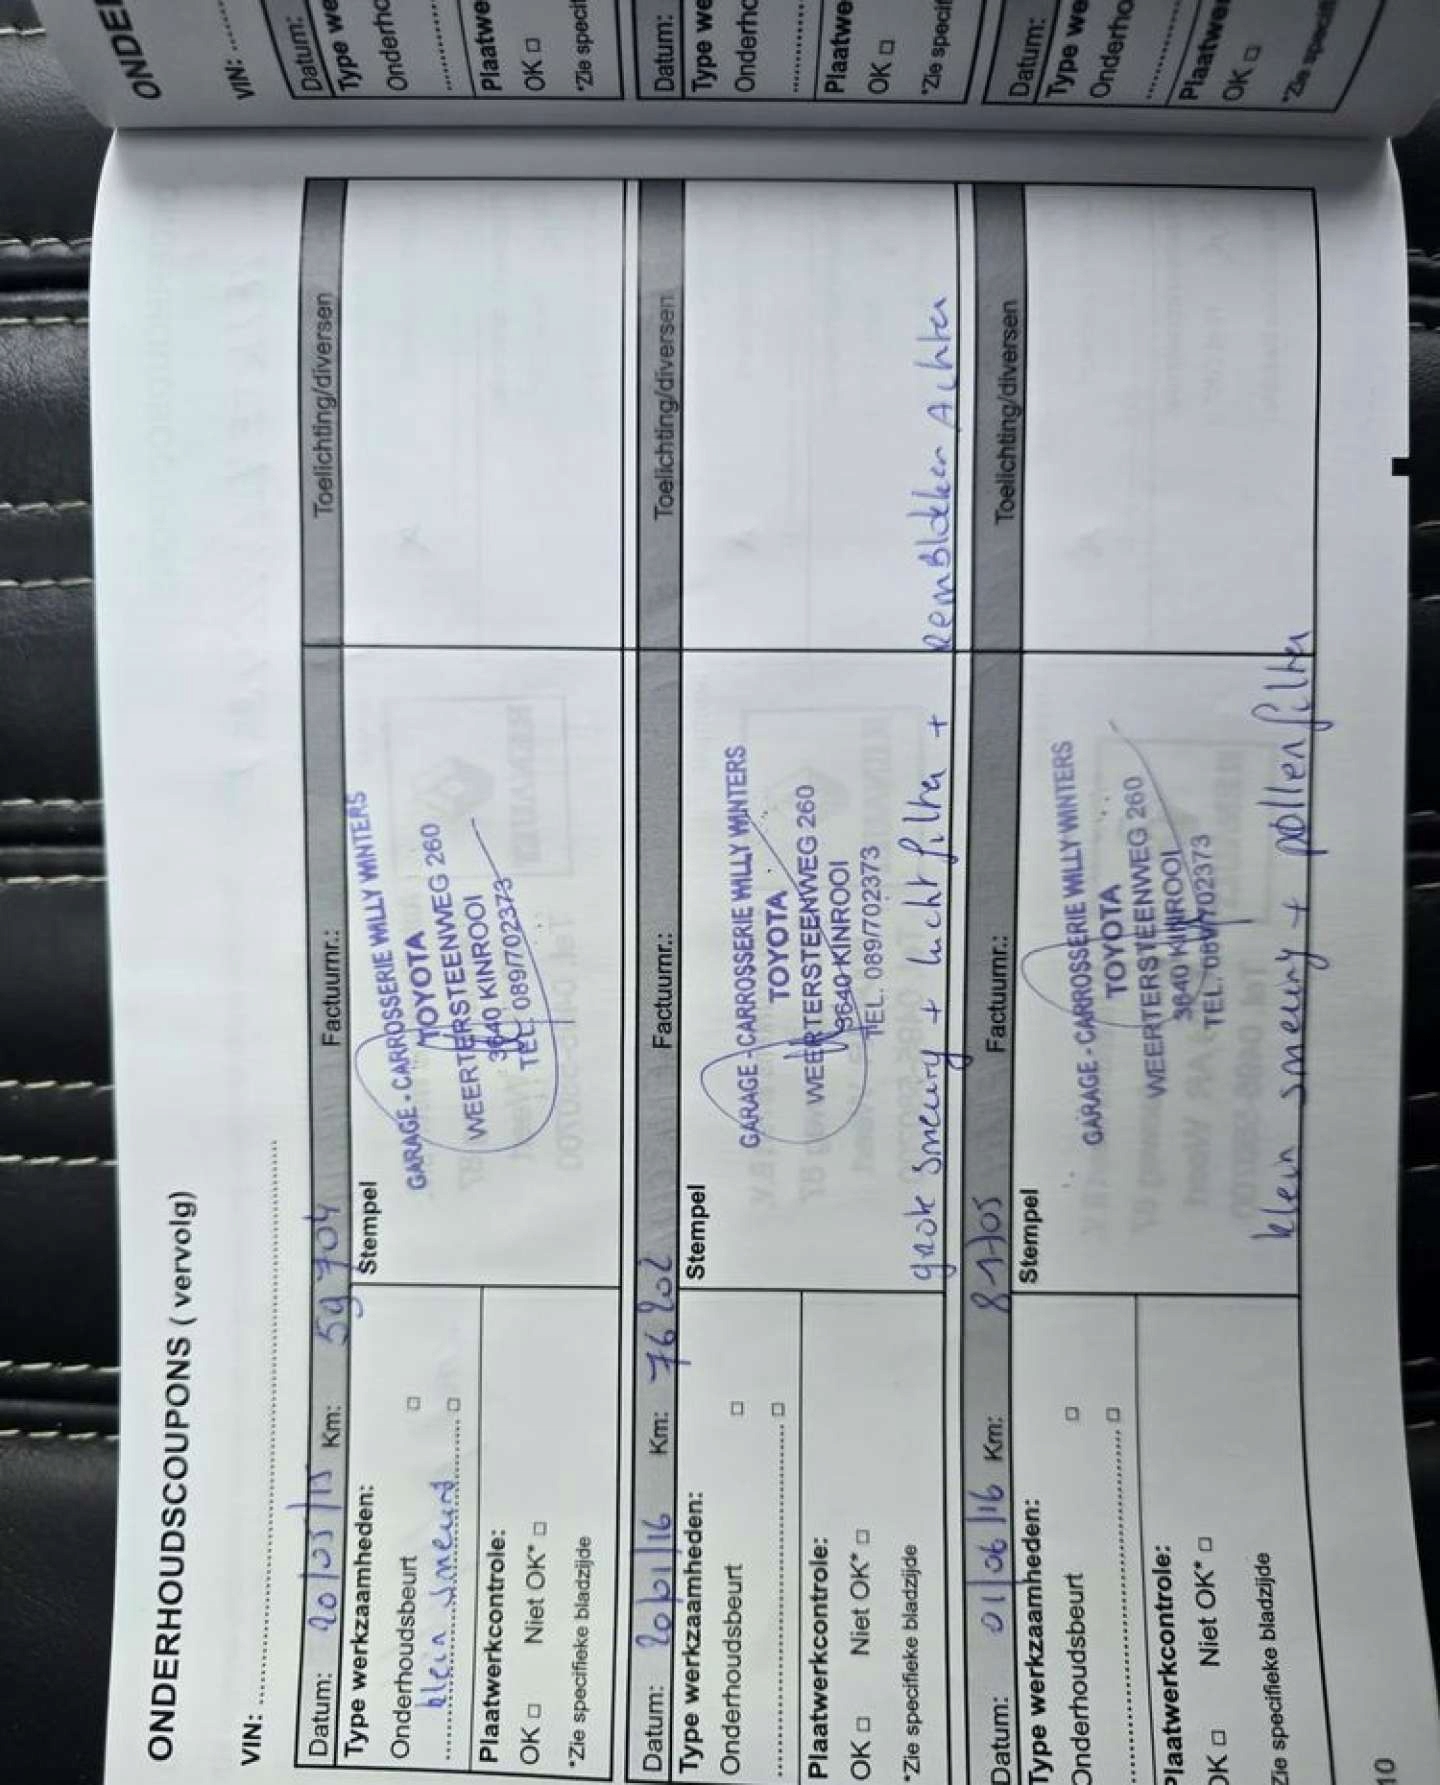 ONDERHOUDSCOUPONS ( vervolg)
VIN:
Datum: 20/03/15 Km: 59 704 Factuurnr.: Toelichting/diversen
Type werkzaamheden:
Stempel
Onderhoudsbeurt □
klein smeurt □
Plaatwerkcontrole:
OK □ Niet OK* □
*Zie specifieke bladzijde
GARAGE - CARROSSERIE WILLY WINTERS
TOYOTA
WEERTERSTEENWEG 260
3640 KINROOI
TEL. 089/702373
Datum: 20/01/16 Km: 76 202 Factuurnr.: Toelichting/diversen
Type werkzaamheden:
Stempel
Onderhoudsbeurt □
□
Plaatwerkcontrole:
OK □ Niet OK* □
*Zie specifieke bladzijde
GARAGE - CARROSSERIE WILLY WINTERS
TOYOTA
WEERTERSTEENWEG 260
3640 KINROOI
TEL. 089/702373
grote smeury + luchtfilter + Remblokken Achter
Datum: 01/06/16 Km: Factuurnr.: Toelichting/diversen
Type werkzaamheden:
Stempel
Onderhoudsbeurt □
□
Plaatwerkcontrole:
OK □ Niet OK* □
Zie specifieke bladzijde
GARAGE - CARROSSERIE WILLY WINTERS
TOYOTA
WEERTERSTEENWEG 260
3640 KINROOI
TEL. 089/702373
klein smeury + pollenfilter
10
ONDE
VIN:
Datum:
Type we
Onderho
Plaatwe
OK □
*Zie specif
Datum:
Type we
Onderho
Plaatwe
OK □
*Zie specif
Datum:
Type we
Onderho
Plaatwer
OK □
*Zie specifi